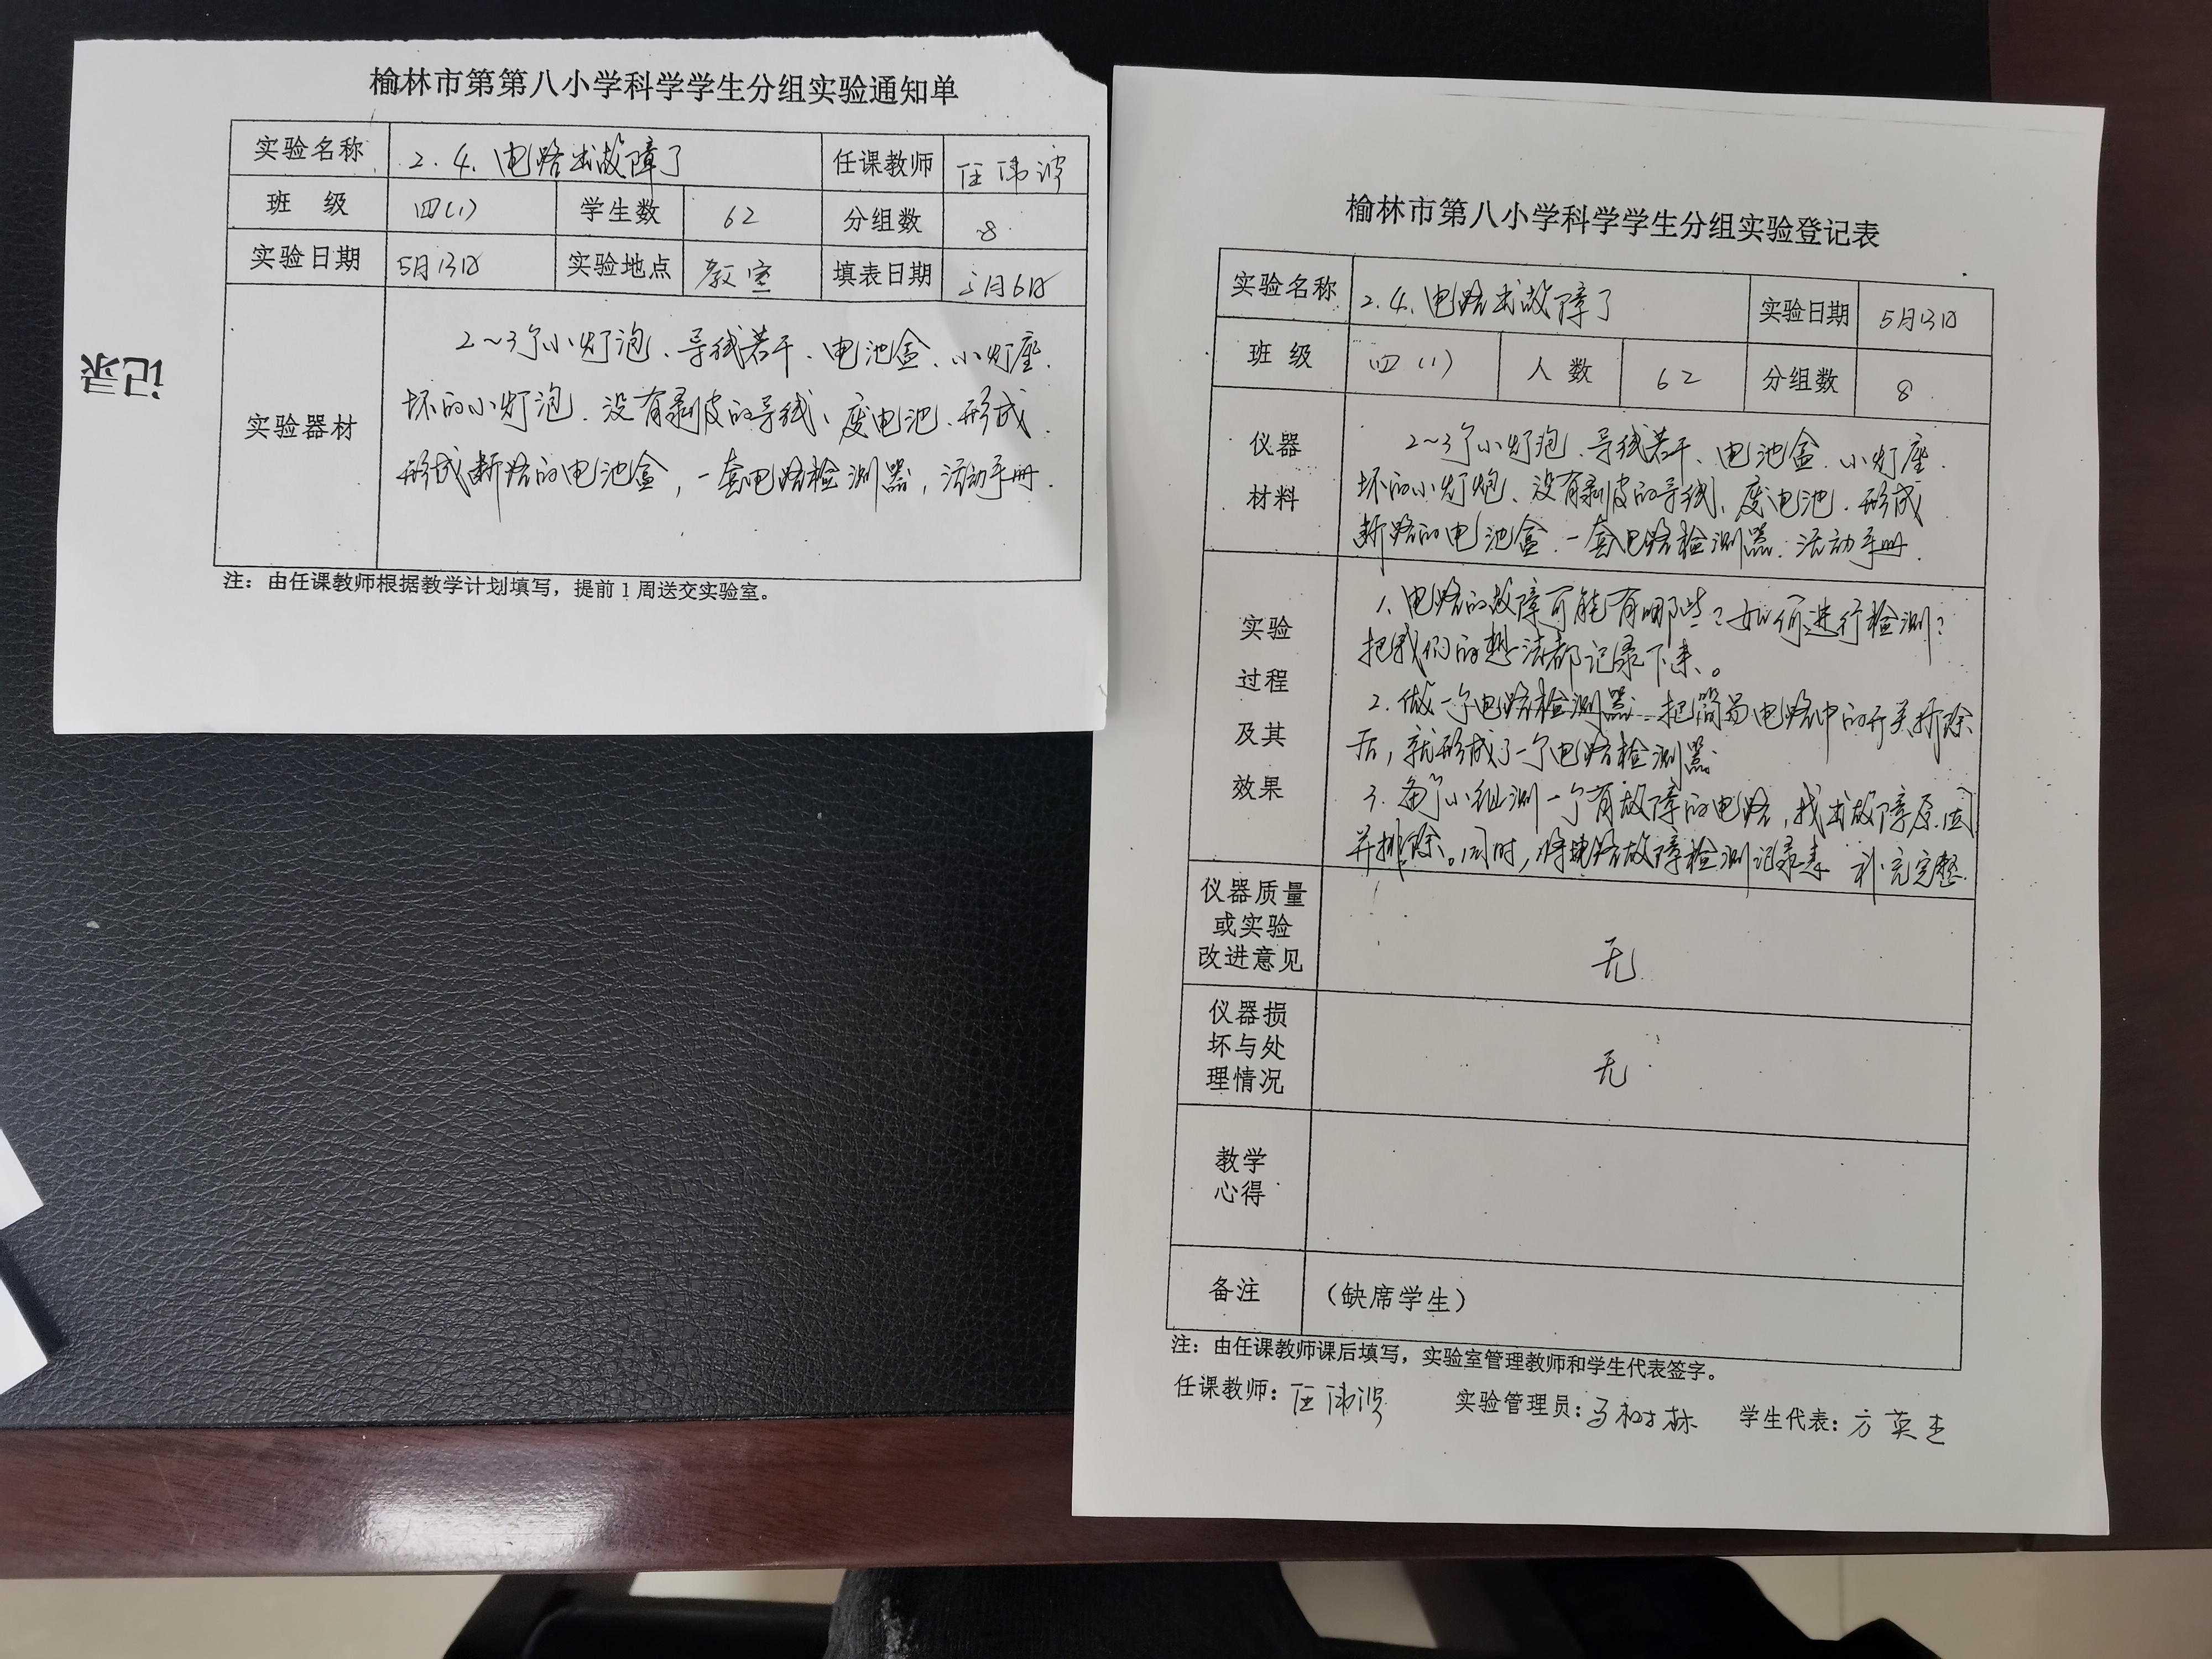 榆林市第第八小学科学学生分组实验通知单
实验名称 2.4.电路出故障了 任课教师 任伟波
班 级 四(1) 学生数 62 分组数 8
实验日期 5月13日 实验地点 教室 填表日期 5月6日
实验器材
2~3个小灯泡、导线若干、电池盒、小灯座.
坏的小灯泡.没有剥皮的导线、废电池.形成
形成断路的电池盒,一套电路检测器,活动手册.
注：由任课教师根据教学计划填写，提前1周送交实验室。
记录
榆林市第八小学科学学生分组实验登记表
实验名称 2.4.电路出故障了 实验日期 5月13日
班 级 四(1) 人 数 62 分组数 8
仪器
材料
2~3个小灯泡、导线若干、电池盒.小灯座.
坏的小灯炮、没有剥皮的导线、废电池.形成
断路的电池盒.一套电路检测器.活动手册.
实验
过程
及其
效果
1.电路的故障可能有哪些?如何进行检测?
把我们的想法都记录下来。
2.做一个电路检测器.把简易电路中的开关拆除
后,就形成了一个电路检测器.
3.每个小组测一个有故障的电路,找出故障原因
并排除。同时,将电路故障检测记录表补充完整.
仪器质量
或实验
改进意见
无
仪器损
坏与处
理情况
无
教学
心得
备注 （缺席学生）
注：由任课教师课后填写，实验室管理教师和学生代表签字。
任课教师：任伟波 实验管理员：马树林 学生代表：方英杰